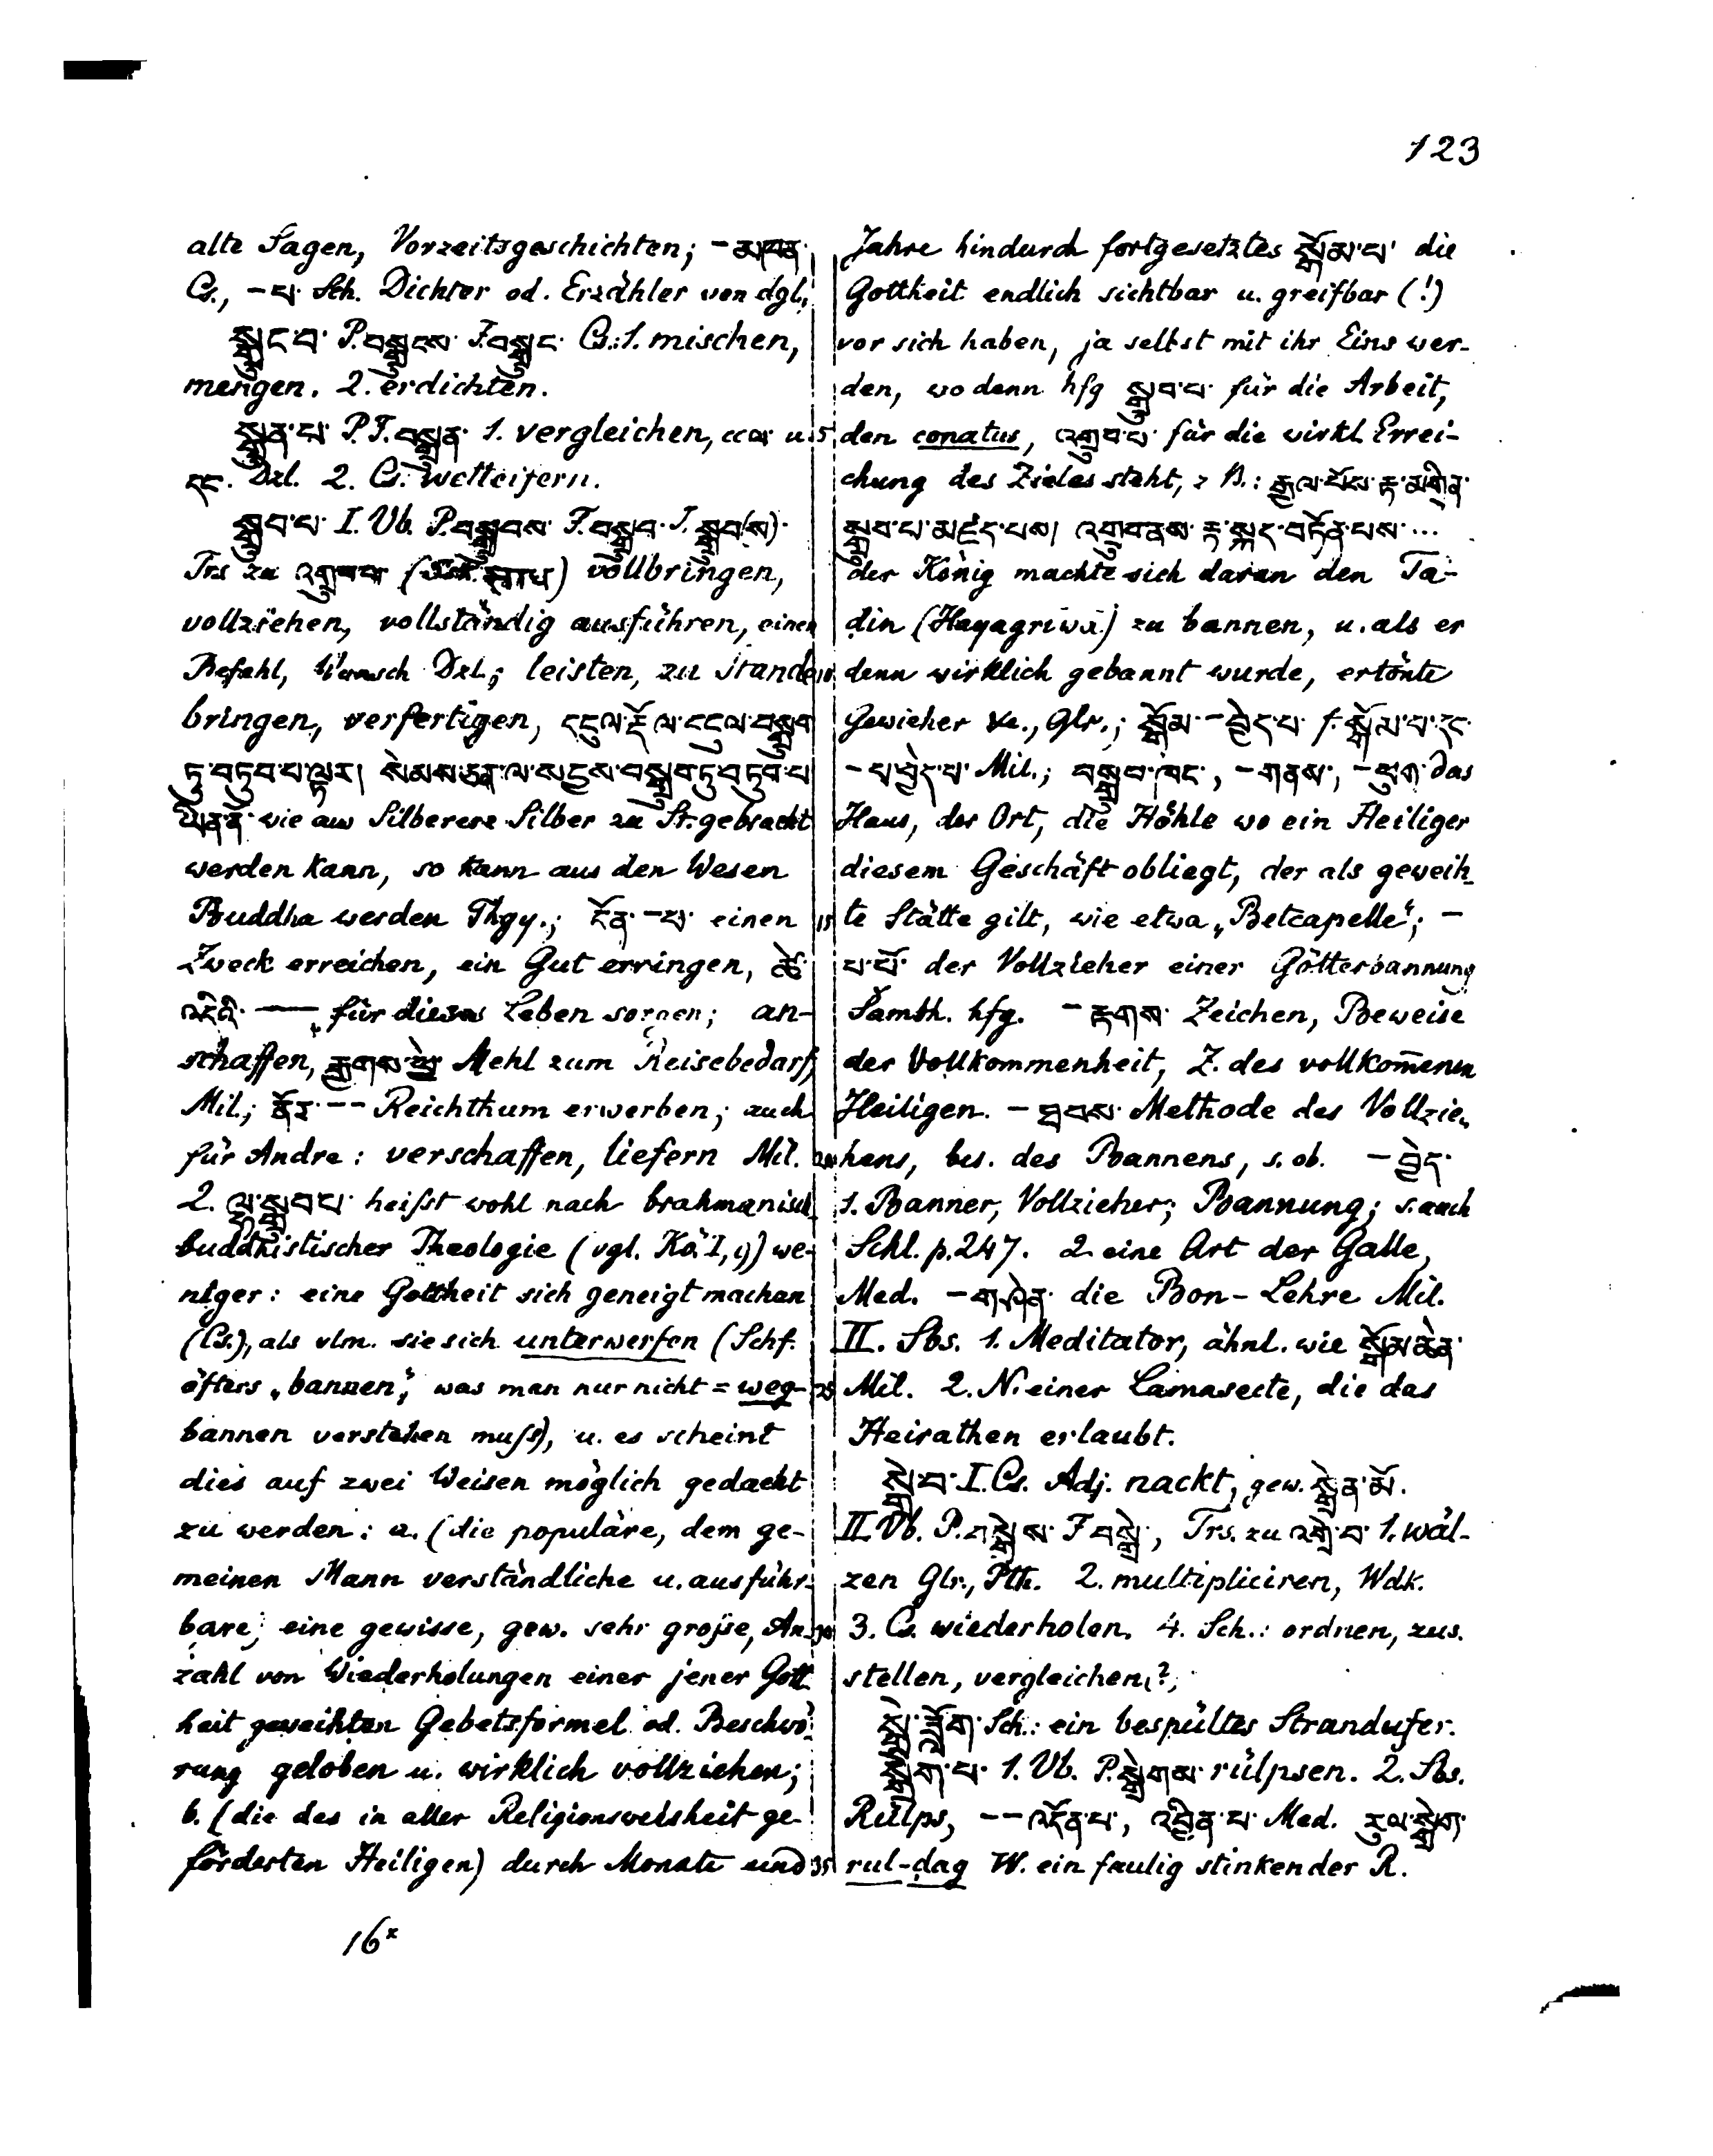 123
alte Sagen, Vorzeitsgeschichten; – མཁན་
Cs., – པ་ Sch. Dichter od. Erzähler von dgl.
སྒྲུང་བ་ P. བསྒྲུངས་ F. བསྒྲུང་ Cs.: 1. mischen,
mengen. 2. erdichten.
སྒྲུན་པ་ P.F. བསྒྲུན་ 1. vergleichen, cc ལ་ u.
དང་. Dzl. 2. Cs. wetteifern.
སྒྲུབ་པ་ I. Vb. P. བསྒྲུབས་ F. བསྒྲུབ་ I. སྒྲུབ(ས)་
Trs zu འགྲུབ་པ་ vollbringen,
vollziehen, vollständig ausführen, einen
Befehl, Wunsch Dzl.; leisten, zu Stande
bringen, verfertigen, དངུལ་རྡོ་ལ་དངུལ་བསྒྲུབ་
ཏུ་བཏུབ་པ་ལྟར། སེམས་ཅན་ལ་སངྱས་བསྒྲུབ་ཏུ་བཏུབ་པ་
ཡིན་ནོ་ wie aus Silbererz Silber zu St. gebracht
werden kann, so kann aus den Wesen
Buddha werden Thgy.; དོན་ – པ་ einen
Zweck erreichen, ein Gut erringen, ཚེ་
འདིའི་ — für dieses Leben sorgen; an-
schaffen, རྒྱགས་ཕྱེ་ Mehl zum Reisebedarf,
Mil.; ནོར་ – – Reichthum erwerben; auch
für Andre: verschaffen, liefern Mil.
2. ལྷ་སྒྲུབ་པ་ heißt wohl nach brahmanisch
buddhistischer Theologie (vgl. Kö. I, 9) we-
niger: eine Gottheit sich geneigt machen
(Cs.), als vlm. sie sich unterwerfen (Schf.
öfters „bannen", was man nur nicht = weg-
bannen verstehen muß), u. es scheint
dies auf zwei Weisen möglich gedacht
zu werden: a. (die populäre, dem ge-
meinen Mann verständliche u. ausführ-
bare) eine gewisse, gew. sehr große, An-
zahl von Wiederholungen einer jener Gott
heit geweihten Gebetsformel od. Beschwö-
rung geloben u. wirklich vollziehen;
b. (die des in aller Religionsweisheit ge-
förderten Heiligen) durch Monate und
16ˣ
Jahre hindurch fortgesetztes སྒོམ་པ་ die
Gottheit endlich sichtbar u. greifbar (!)
vor sich haben, ja selbst mit ihr Eins wer-
den, wo denn hfg སྒྲུབ་པ་ für die Arbeit,
5 den conatus, འགྲུབ་པ་ für die wirkl Errei-
chung des Zieles steht, z B.: རྒྱལ་པོས་རྟ་མགྲིན་
སྒྲུབ་པ་མཛད་པས། འགྲུབ་ནས་རྟ་སྐད་བཏོན་པས་ ...
der König machte sich daran den Ta-
din (Hayagriwa) zu bannen, u. als er
10 denn wirklich gebannt wurde, ertönte
Gewieher ɩc., Glr.; སྒོམ་ – བྱེད་པ་ f. སྒོམ་པ་དང་
– པ་བྱེད་པ་ Mil.; བསྒྲུབ་ཁང་, – གནས་, – ཕུག་ das
Haus, der Ort, die Höhle wo ein Heiliger
diesem Geschäft obliegt, der als geweih-
15 te Stätte gilt, wie etwa „Betcapelle"; –
པ་པོ་ der Vollzieher einer Götterbannung
Sambh. hfg. – རྟགས་ Zeichen, Beweise
der Vollkommenheit, Z. des vollkom̄enen
Heiligen. – ཐབས་ Methode des Vollzie-
20 hens, bes. des Bannens, s. ob. – བྱེད་
1. Banner, Vollzieher; Bannung; s. auch
Schl. p. 247. 2. eine Art der Galle,
Med. – གཤེན་ die Bon-Lehre Mil.
II. Sbs. 1. Meditator, ähnl. wie སྒོམ་ཆེན་
25 Mil. 2. N. einer Lamasecte, die das
Heirathen erlaubt.
སྒྲེ་བ་ I. Cs. Adj. nackt, gew. སྒྲེན་མོ་.
II. Vb. P. བསྒྲེས་ F བསྒྲེ་, Trs. zu འགྲེ་བ་ 1. wäl-
zen Glr., Pth. 2. multipliciren, Wdk.
30 3. Cs. wiederholen. 4. Sch.: ordnen, zus.
stellen, vergleichen, ?,
Sch.: ein bespültes Strandufer.
སྒྲེག་པ་ 1. Vb. P. སྒྲེགས་ rülpsen. 2. Sbs.
Rülps, – – འདོན་པ་, འབྱིན་པ་ Med. རུལ་སྒྲེག་
35 rul-dag W. ein faulig stinkender R.